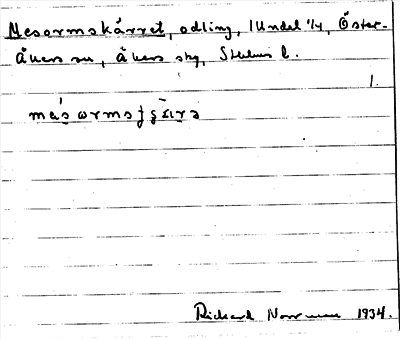 Mesormskärret, odling, 1 Undal 1/4, Öster-
Åkers sn, Åkers skg, Sthlms l.
1.
Richard Norrman 1934.